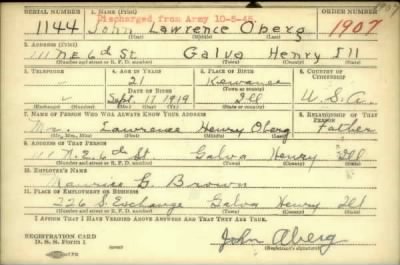 SERIAL NUMBER 1. NAME (Print) ORDER NUMBER
Discharged from Army 10-5-45.
1144 John Lawrence Oberg 1907
(First) (Middle) (Last)
2. ADDRESS (Print)
111 N.E. 6d St. Galva Henry Ill
(Number and street or R. F. D. number) (Town) (County) (State)
3. TELEPHONE 4. AGE IN YEARS 5. PLACE OF BIRTH 6. COUNTRY OF CITIZENSHIP
21 Kewanee
DATE OF BIRTH (Town or county)
Sept. 17 1919 Ill U.S.A.
(Mo.) (Day) (Yr.) (State or country)
7. NAME OF PERSON WHO WILL ALWAYS KNOW YOUR ADDRESS 8. RELATIONSHIP OF THAT PERSON
Mr. Lawrence Henry Oberg Father
(Mr., Mrs., Miss) (First) (Middle) (Last)
9. ADDRESS OF THAT PERSON
111 N.E. 6d St Galva Henry Ill
(Number and street or R. F. D. number) (Town) (County) (State)
10. EMPLOYER'S NAME
G. Brown
11. PLACE OF EMPLOYMENT OR BUSINESS
226 S. Exchange Galva Henry Ill
(Number and street or R. F. D. number) (Town) (County) (State)
I AFFIRM THAT I HAVE VERIFIED ABOVE ANSWERS AND THAT THEY ARE TRUE.
REGISTRATION CARD
D. S. S. Form 1 John Oberg
(Registrant's signature)